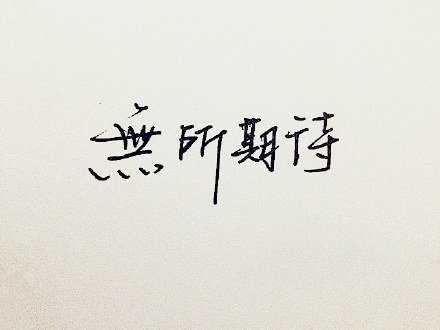 無所期待